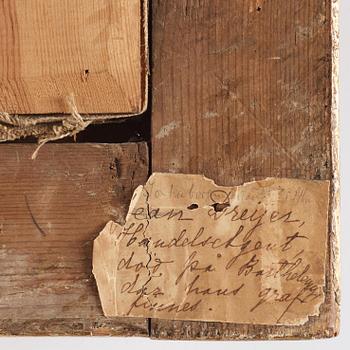 ean Greijer,
Handelsagent
dog på Barthelemy
där hans graf
finnes.